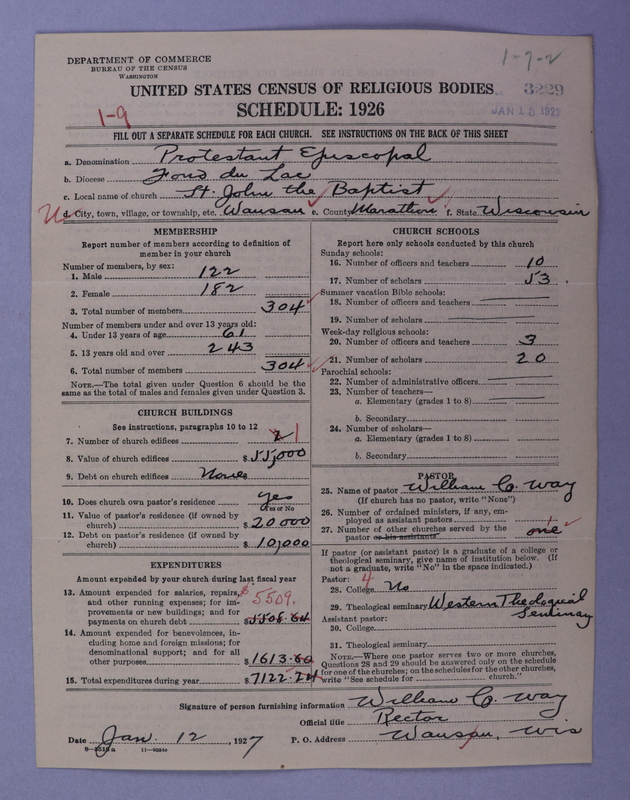 1-7-2
DEPARTMENT OF COMMERCE
BUREAU OF THE CENSUS
WASHINGTON
UNITED STATES CENSUS OF RELIGIOUS BODIES
3229
SCHEDULE: 1926
JAN 15 1927
1-9
FILL OUT A SEPARATE SCHEDULE FOR EACH CHURCH. SEE INSTRUCTIONS ON THE BACK OF THIS SHEET
a. Denomination Protestant Episcopal
b. Diocese Fond du Lac
c. Local name of church St. John the Baptist
U d. City, town, village, or township, etc. Wausau e. County Marathon f. State Wisconsin
MEMBERSHIP
Report number of members according to definition of
member in your church
Number of members, by sex:
1. Male 122
2. Female 182
3. Total number of members 304
Number of members under and over 13 years old:
4. Under 13 years of age 61
5. 13 years old and over 243
6. Total number of members 304
NOTE.—The total given under Question 6 should be the
same as the total of males and females given under Question 3.
CHURCH BUILDINGS
See instructions, paragraphs 10 to 12
7. Number of church edifices 2 1
8. Value of church edifices $55,000
9. Debt on church edifices None
10. Does church own pastor's residence Yes
Yes or No
11. Value of pastor's residence (if owned by
church) $20000
12. Debt on pastor's residence (if owned by
church) $10,000
EXPENDITURES
Amount expended by your church during last fiscal year
13. Amount expended for salaries, repairs,
and other running expenses; for im-
provements or new buildings; and for
payments on church debt $5509. $5508.64
14. Amount expended for benevolences, in-
cluding home and foreign missions; for
denominational support; and for all
other purposes $1613.60
15. Total expenditures during year $7122.24
CHURCH SCHOOLS
Report here only schools conducted by this church
Sunday schools:
16. Number of officers and teachers 10
17. Number of scholars 53
Summer vacation Bible schools:
18. Number of officers and teachers
19. Number of scholars
Week-day religious schools:
20. Number of officers and teachers 3
21. Number of scholars 20
Parochial schools:
22. Number of administrative officers
23. Number of teachers—
a. Elementary (grades 1 to 8)
b. Secondary
24. Number of scholars—
a. Elementary (grades 1 to 8)
b. Secondary
PASTOR
25. Name of pastor William C. Way
(If church has no pastor, write "None")
26. Number of ordained ministers, if any, em-
ployed as assistant pastors
27. Number of other churches served by the
pastor or his assistants one
If pastor (or assistant pastor) is a graduate of a college or
theological seminary, give name of institution below. (If
not a graduate, write "No" in the space indicated.)
Pastor: 4
28. College No
29. Theological seminary Western Theological
Seminary
Assistant pastor:
30. College
31. Theological seminary
NOTE.—Where one pastor serves two or more churches,
Questions 28 and 29 should be answered only on the schedule
for one of the churches; on the schedules for the other churches,
write "See schedule for church."
Signature of person furnishing information William C. Way
Official title Rector
Date Jan. 12, 1927 P. O. Address Wausau, Wis